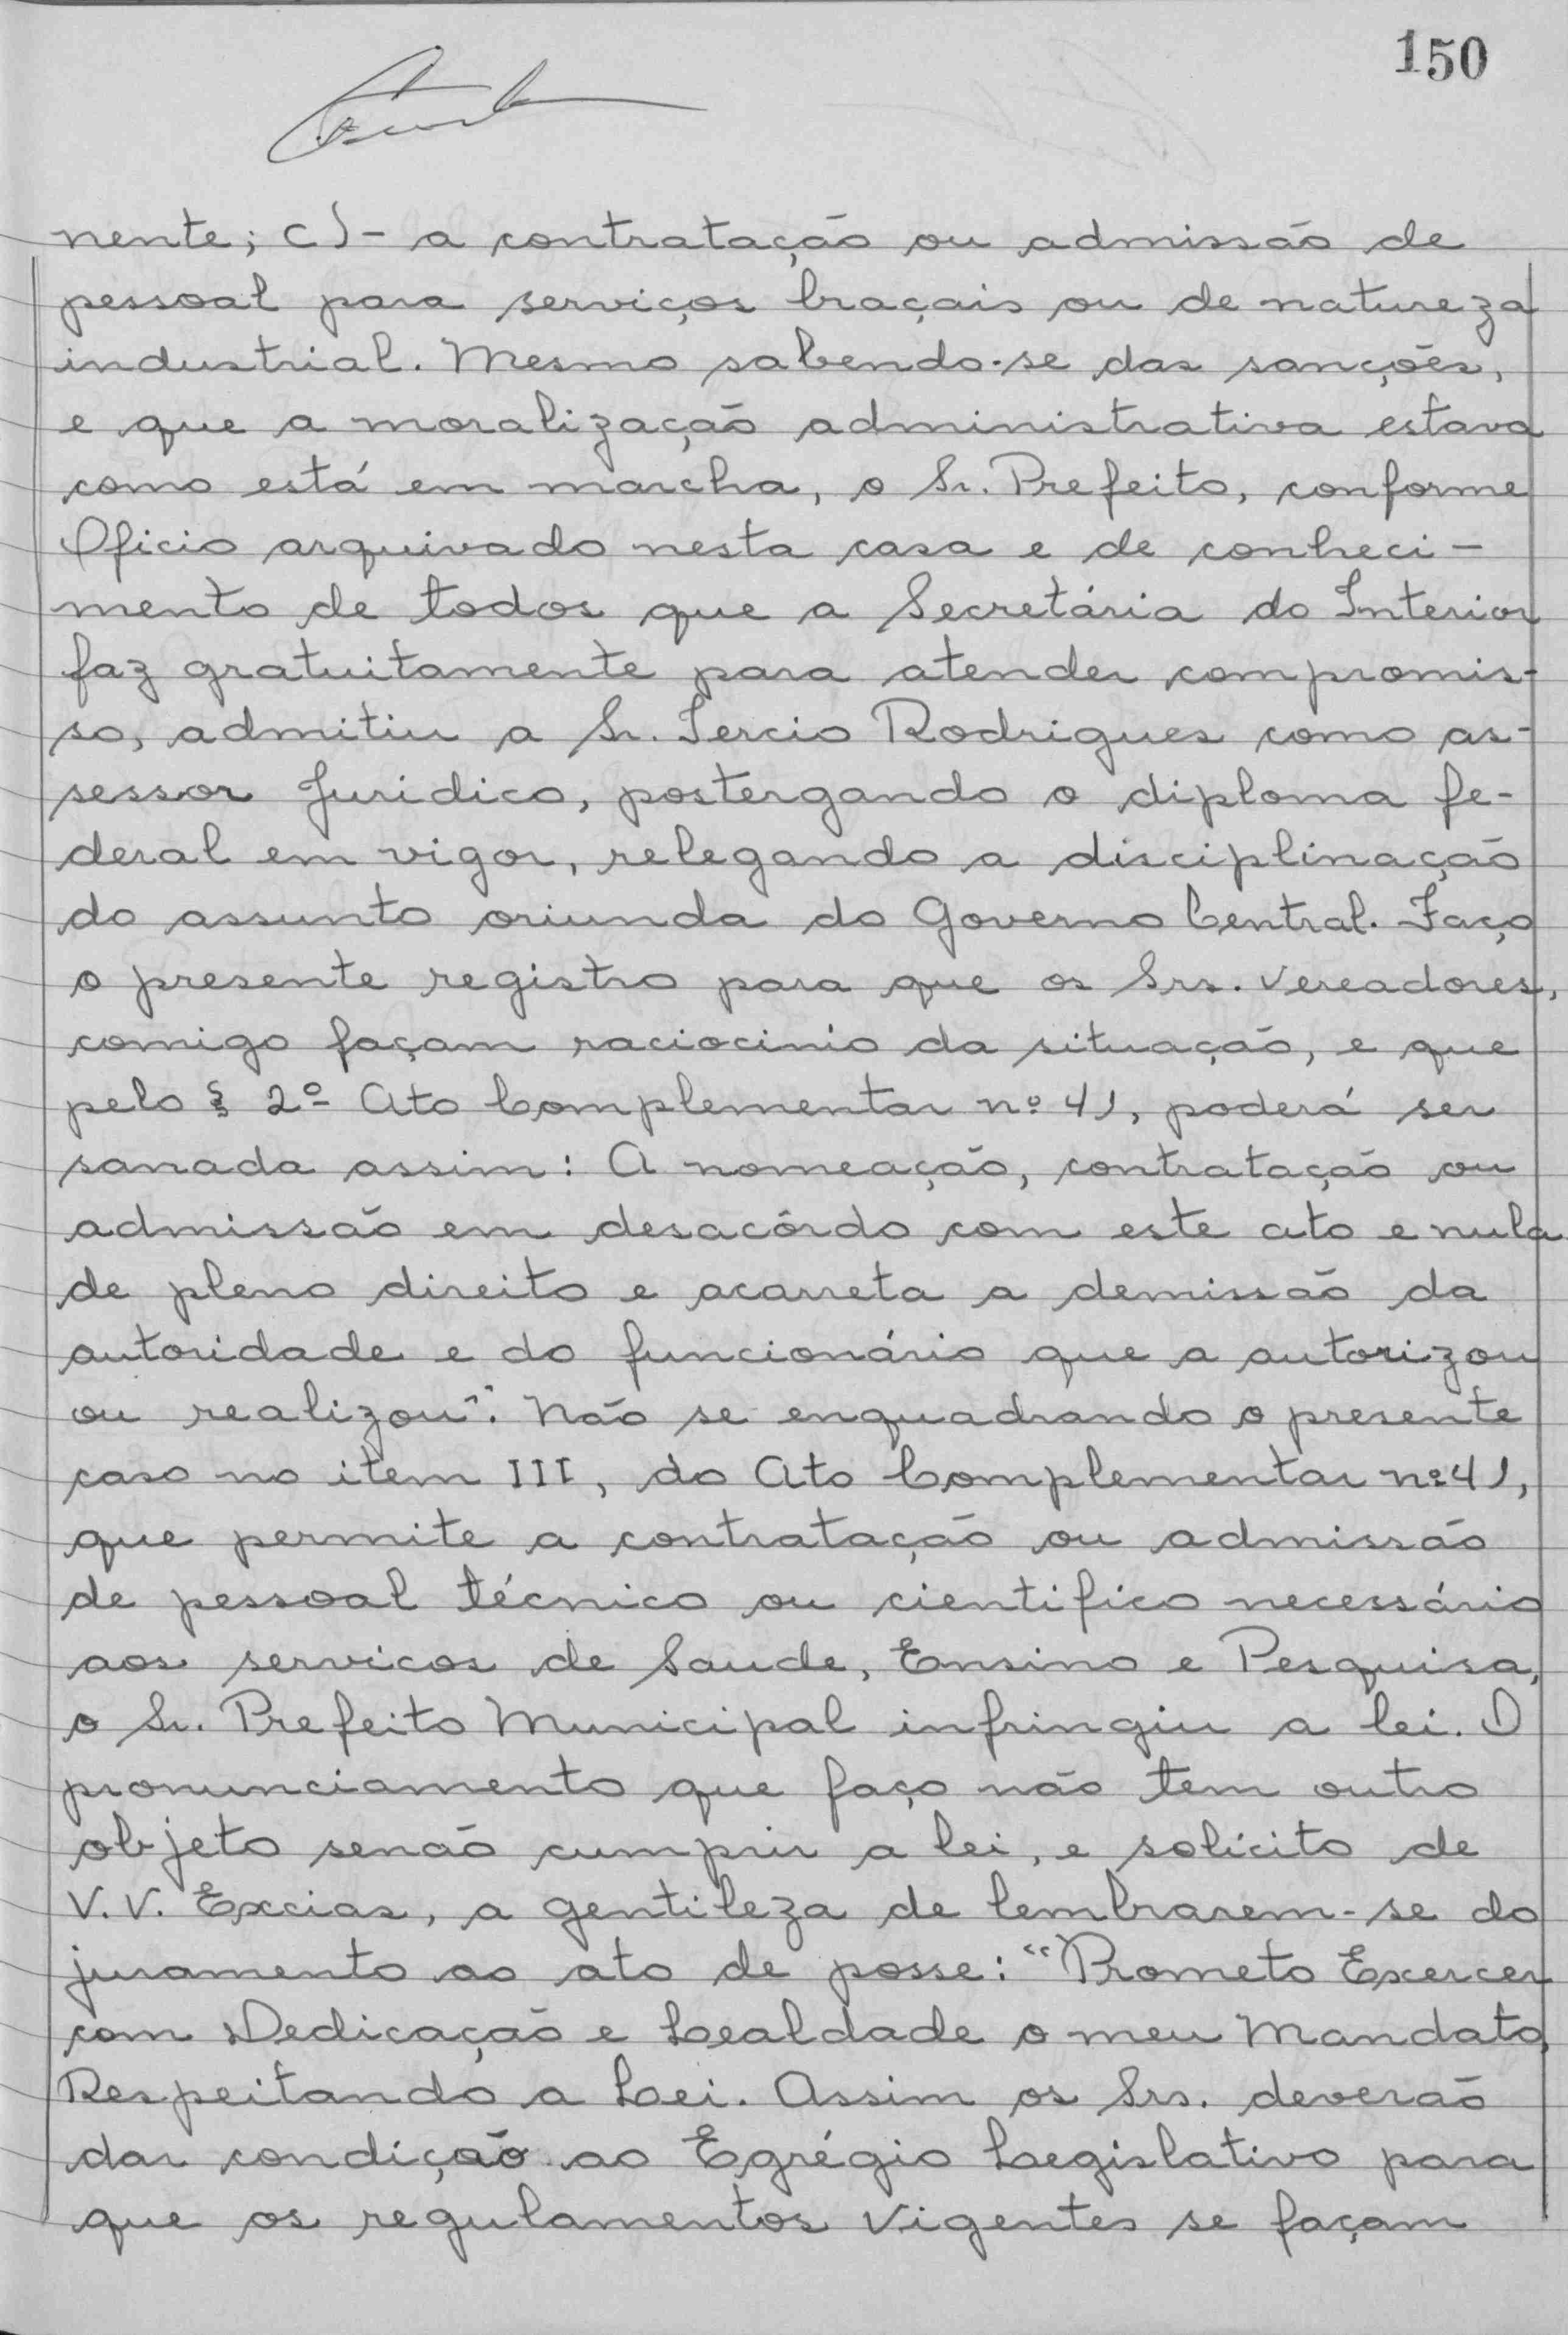 150
nente; c) - a contratação ou admissão de
pessoal para serviços braçais ou de natureza
industrial. Mesmo sabendo-se das sanções,
e que a moralização administrativa estava
como está em marcha, o Sr. Prefeito, conforme
Oficio arquivado nesta casa e de conheci-
mento de todos que a Secretária do Interior
faz gratuitamente para atender compromis-
so, admitiu a Sr. Tercio Rodrigues como as-
sessor Juridico, postergando o diploma fe-
deral em vigor, relegando a disciplinação
do assunto oriunda do Governo Central. Faço
o presente registro para que os Srs. Vereadores,
comigo façam raciocinio da situação, e que
pelo § 2º Ato Complementar nº 41, poderá ser
sanada assim: A nomeação, contratação ou
admissão em desacôrdo com este ato e nula
de pleno direito e acarreta a demissão da
autoridade e do funcionário que a autorizou
ou realizou". Não se enquadrando o presente
caso no item III, do Ato Complementar nº 41,
que permite a contratação ou admissão
de pessoal técnico ou cientifico necessário
aos servicos de Saude, Ensino e Pesquisa,
o Sr. Prefeito Municipal infringiu a lei. O
pronunciamento que faço não tem outro
objeto senão cumprir a lei, e solícito de
V.V. Excias, a gentileza de lembrarem-se do
juramento ao ato de posse: "Prometo Exercer
com Dedicação e Lealdade o meu Mandato,
Respeitando a Lei. Assim os Srs. deverão
dar condição ao Egrégio Legislativo para
que os regulamentos vigentes se façam